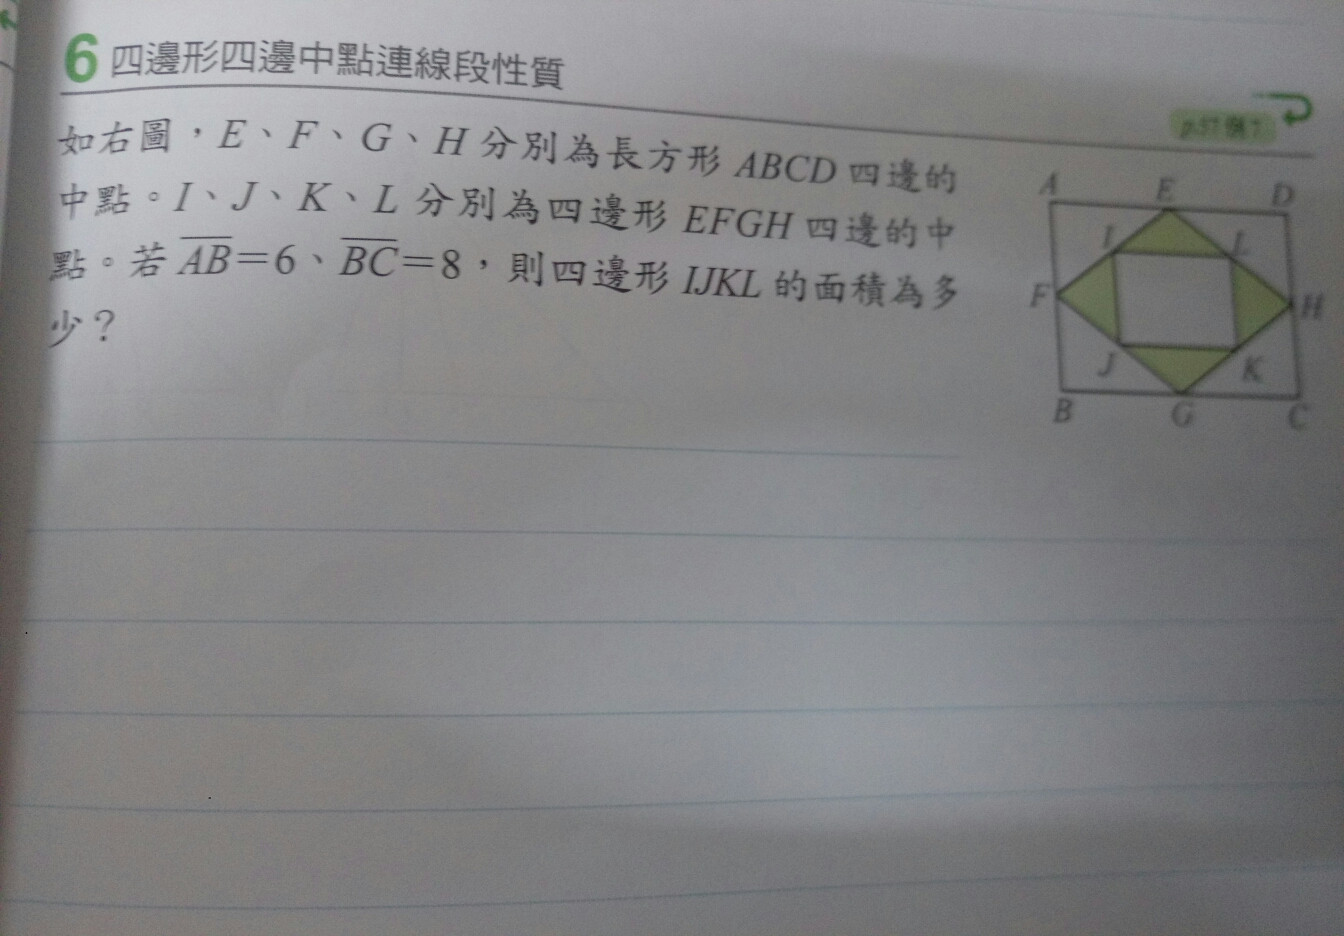 6 四邊形四邊中點連線段性質
p.57例7
如右圖，E、F、G、H 分別為長方形 ABCD 四邊的
中點。I、J、K、L 分別為四邊形 EFGH 四邊的中
點。若 AB=6、BC=8，則四邊形 IJKL 的面積為多
少？
A E D
I L
F H
J K
B G C